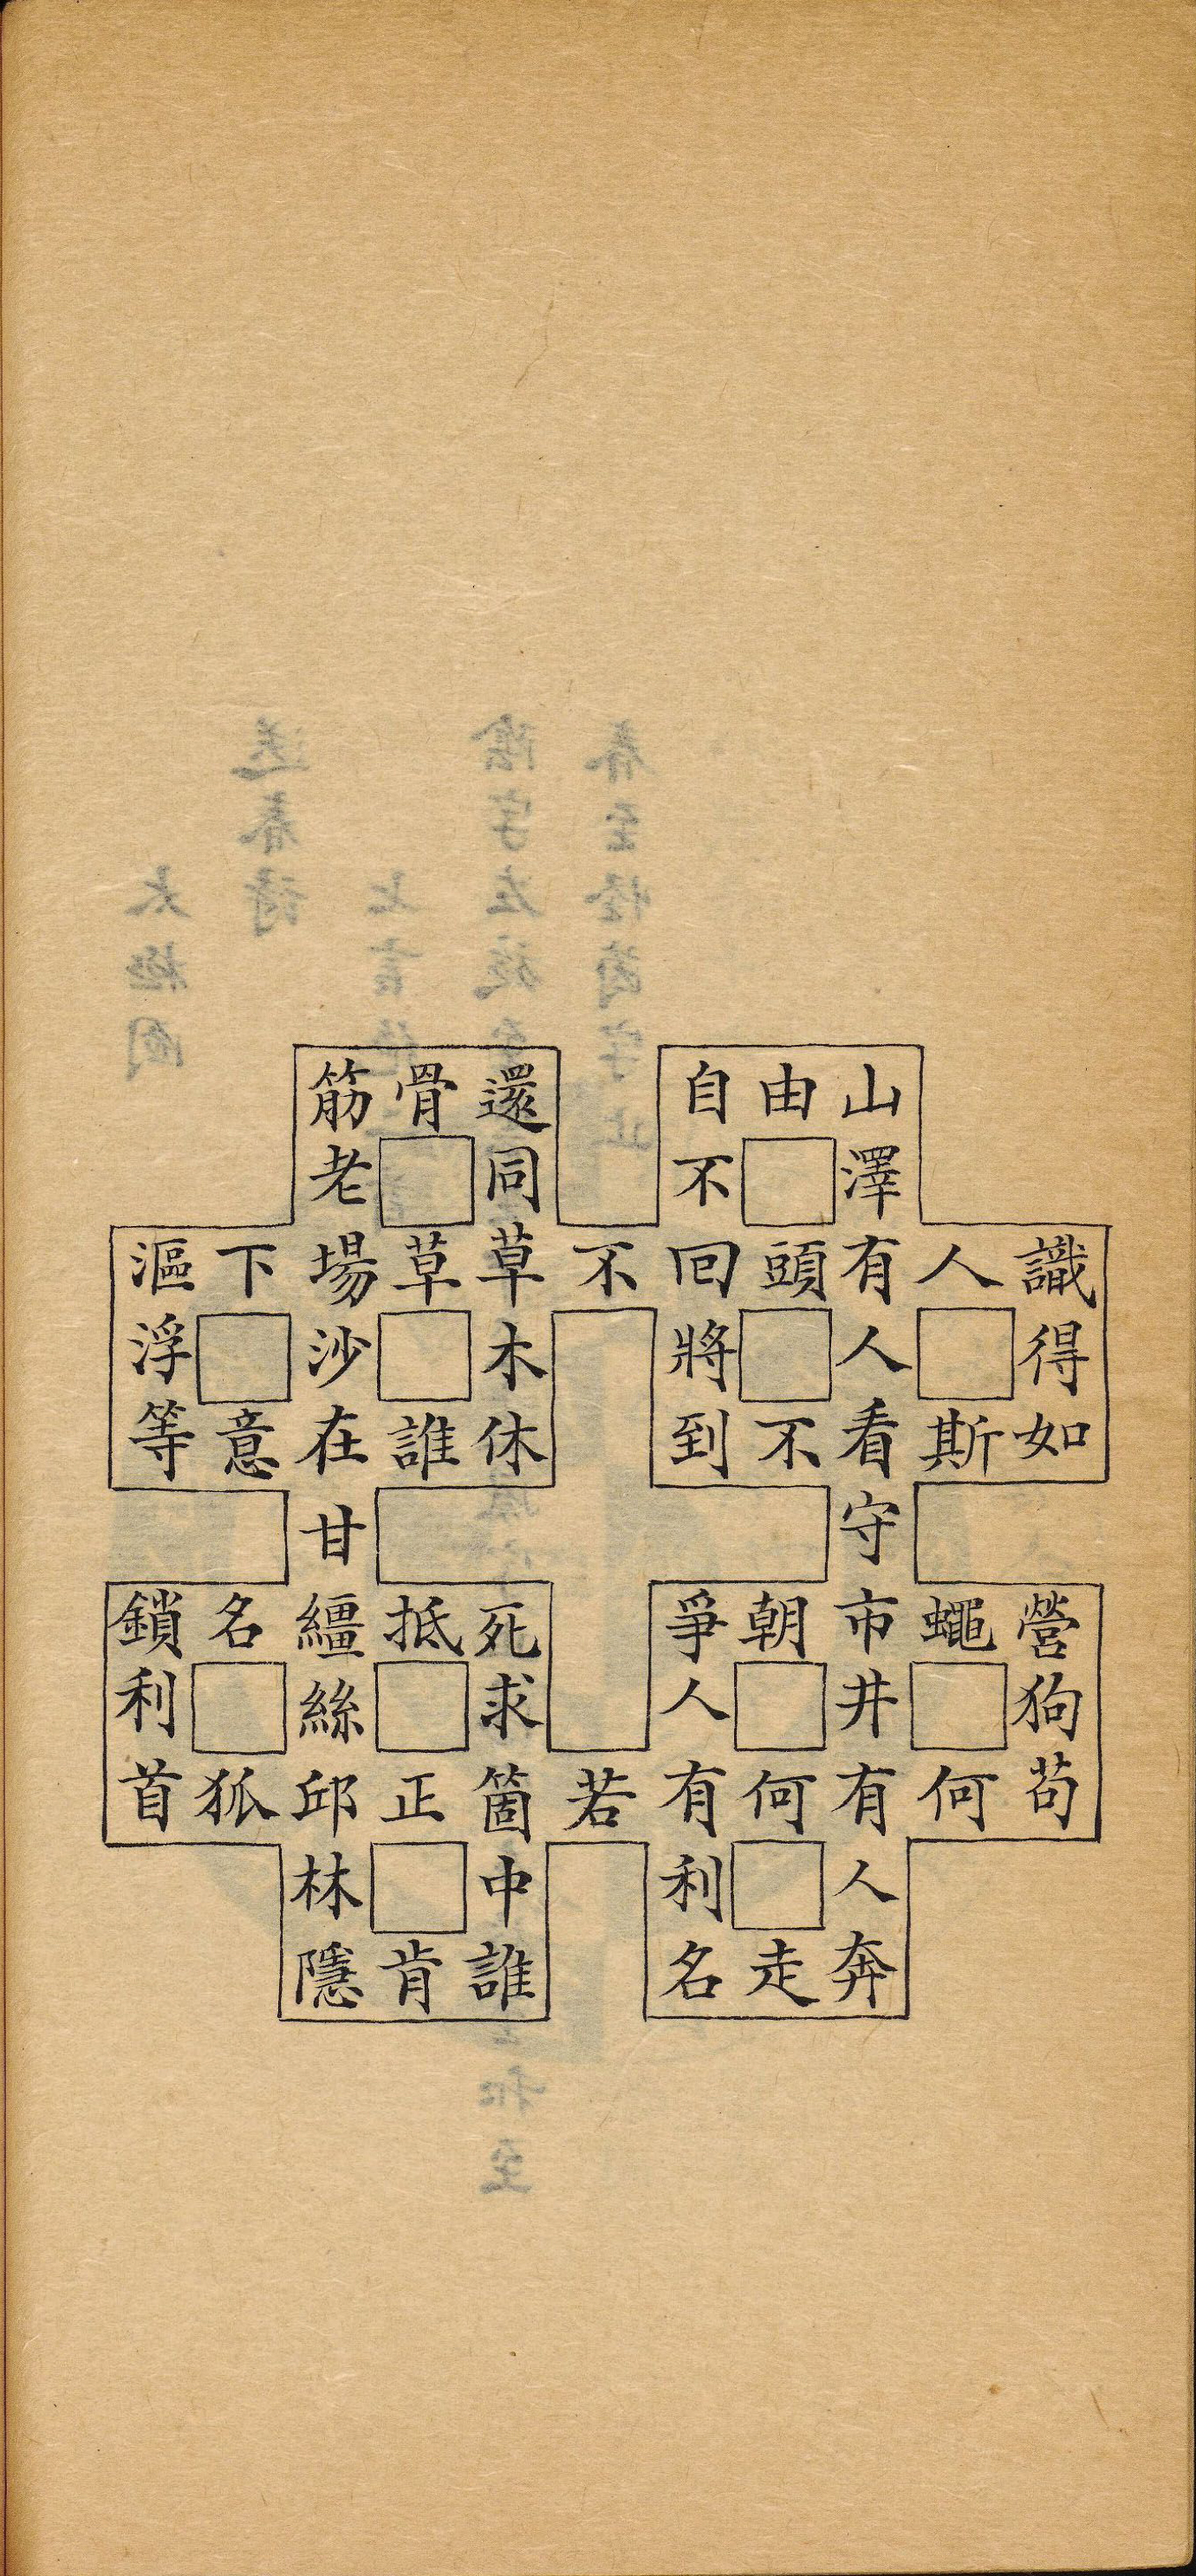 識得如
人斯
山澤有人看守市井有人奔
由頭不朝何走
自不回將到爭人有利名
不若
還同草木休死求箇中誰
骨草誰抵正肯
筋老場沙在甘繮絲邱林隱
下意名狐
漚浮等鎖利首
營狗苟
蠅何